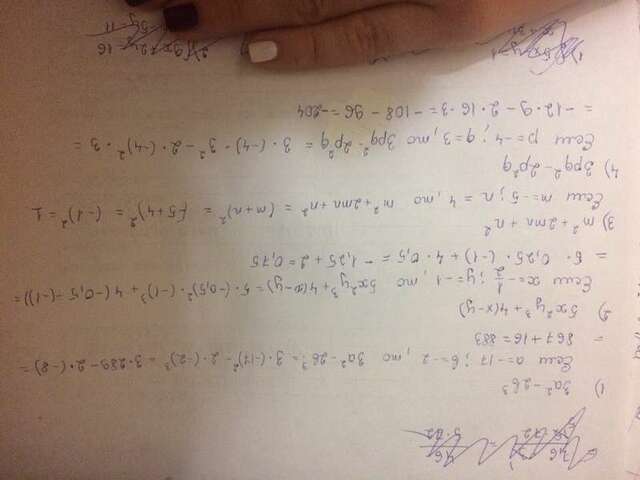 1) 3a²-2b³
Если a=-17; b=-2, то 3a²-2b³ = 3·(-17)²-2·(-2)³ = 3·289-2·(-8) =
= 867+16=883
2) 5x²y³+4(x-y)
Если x=-1/2; y=-1, то 5x²y³+4(x-y) = 5·(-0,5)²·(-1)³+4(-0,5-(-1)) =
= 5·0,25·(-1)+4·0,5 = -1,25+2 = 0,75
3) m²+2mn+n²
Если m=-5; n=4, то m²+2mn+n² = (m+n)² = (-5+4)² = (-1)² = 1
4) 3pq²-2p²q
Если p=-4; q=3, то 3pq²-2p²q = 3·(-4)·3²-2·(-4)²·3 =
= -12·9-2·16·3 = -108-96 = -204